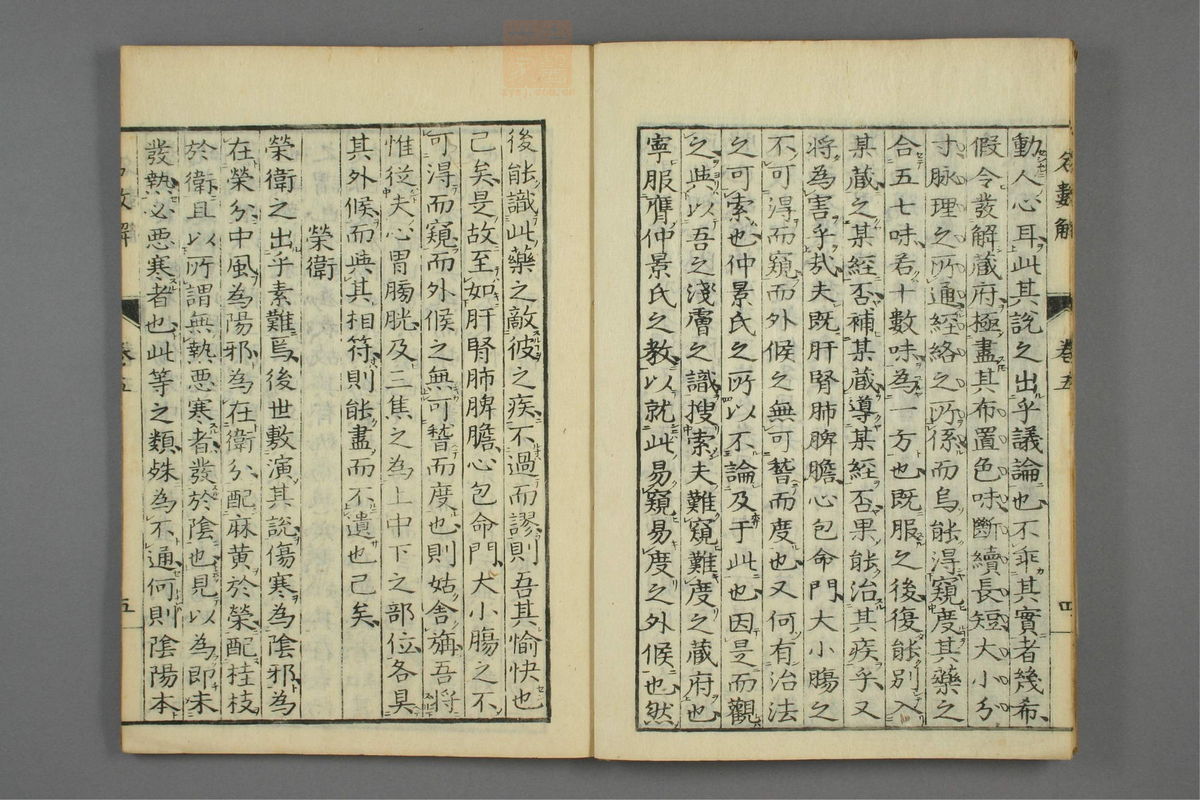 名數解 卷五 四
動人心耳此其說之出乎議論也不乖其實者幾希
假令發解藏府極盡其布置色味斷續長短大小分
寸脉理之所通經絡之所係而烏能得窺度其藥之
合五七味若十數味為一方也既服之後復能別入
某藏之某經否補某藏導某經否果能治其疾乎又
將為害乎哉夫既肝腎肺脾膽心包命門大小腸之
不可得而窺而外候之無可暬而度也又何有治法
之可索也仲景氏之所以不論及于此也因是而觀
之與以吾之淺膚之識搜索夫難窺難度之藏府也
寧服膺仲景氏之教以就此易窺易度之外候也然
後能識此藥之敵彼之疾不過而謬則吾其愉快也
己矣是故至如肝腎肺脾膽心包命門大小腸之不
可得而窺而外候之無可暬而度也則姑舍旃吾將
惟從夫心胃膓胱及三焦之為上中下之部位各具
其外候而與其相符則能盡而不遺也己矣
榮衛
榮衛之出乎素難焉後世敷演其說傷寒為陰邪為
在榮分中風為陽邪為在衛分配麻黃於榮配桂枝
於衛且以所謂無熱惡寒者發於陰也見以為即未
發熱必惡寒者也此等之類殊為不通何則陰陽本
卷五 五